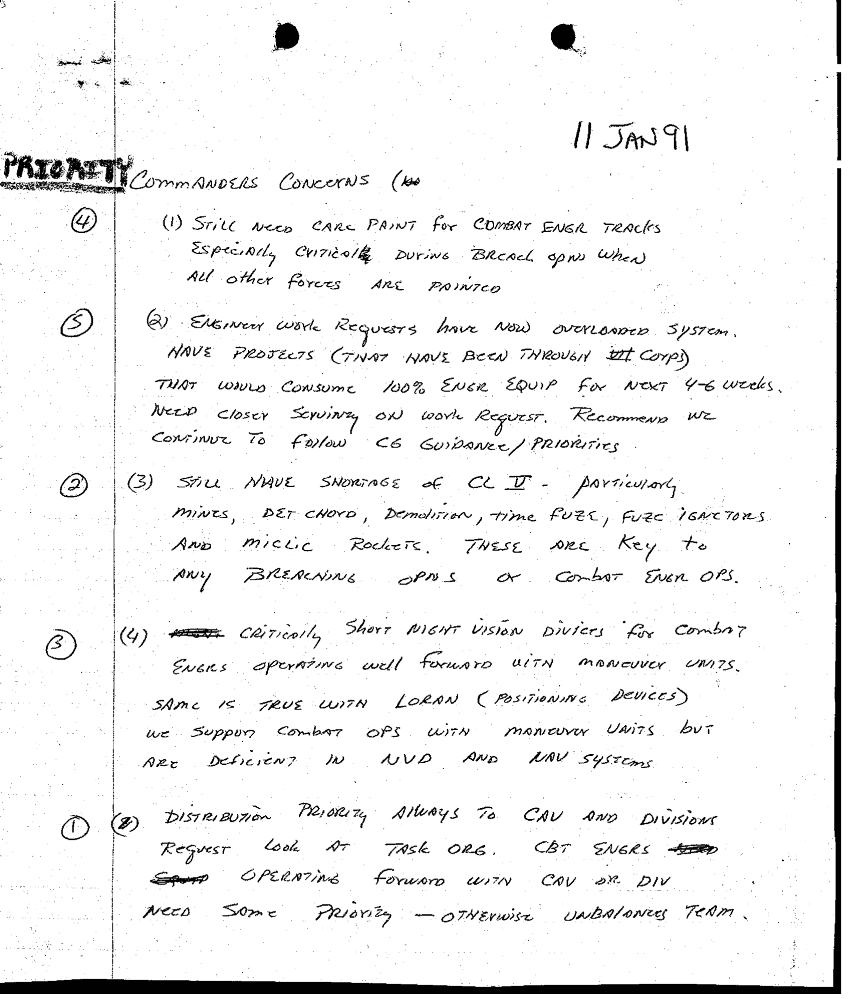 11 JAN 91
PRIORITY
COMMANDERS CONCERNS (
4 (1) STILL NEED CARC PAINT for COMBAT ENGR TRACKS
ESPECIALLY CRITICAL DURING BREACH OPNS WHEN
ALL other forces ARE PAINTED
5 (2) ENGINEER WORK REQUESTS have NOW OVERLOADED SYSTEM.
HAVE PROJECTS (THAT HAVE BEEN THROUGH VII CORPS)
THAT WOULD CONSUME 100% ENGR EQUIP for NEXT 4-6 weeks.
NEED CLOSER SCRUINTY ON WORK REQUEST. RECOMMEND WE
CONTINUE TO FOLLOW CG GUIDANCE/PRIORITIES
2 (3) STILL HAVE SHORTAGE of CL V - PARTICULARLY
MINES, DET CHORD, Demolition, time FUZE, FUZE IGNCTORS
AND MICLIC ROCKETS. THESE ARE Key to
ANY BREACHING OPNS or COMBAT ENGR OPS.
3 (4) CRITICALLY SHORT NIGHT VISION DIVICES for COMBAT
ENGRS OPERATING well forward WITH MANEUVER UNITS.
SAME IS TRUE WITH LORAN (POSITIONING DEVICES)
WE SUPPORT COMBAT OPS WITH MANEUVER UNITS but
ARE DEFICIENT IN NVD AND NAV SYSTEMS
1 DISTRIBUTION PRIORITY ALWAYS TO CAV AND DIVISIONS
REQUEST LOOK AT TASK ORG. CBT ENGRS
OPERATING forward WITH CAV OR DIV
NEED SOME PRIORITY — OTHERWISE UNBALANCES TEAM.